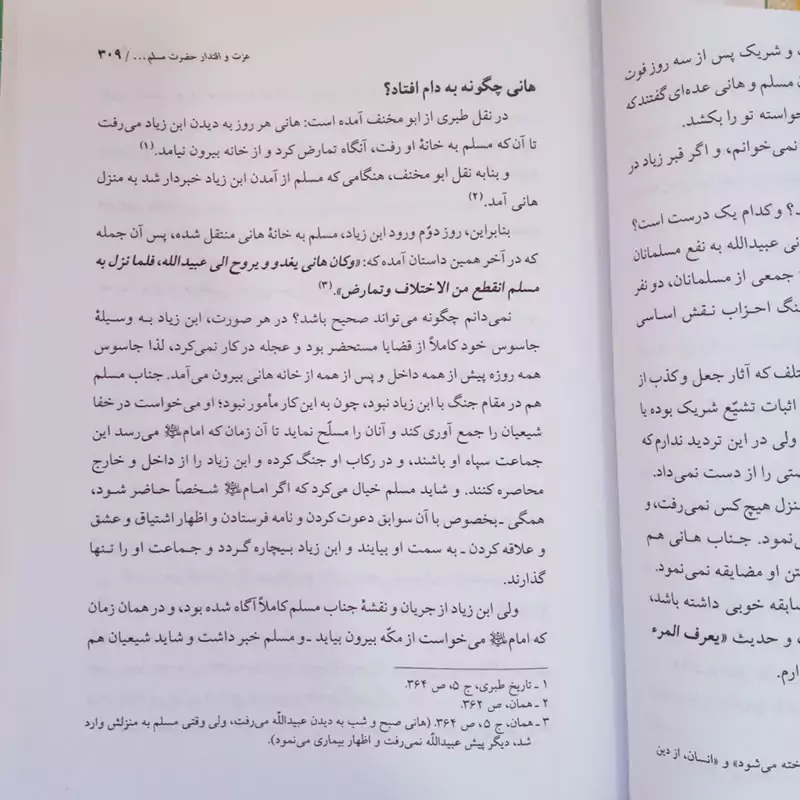 و شریک پس از سه روز فوت
مسلم و هانی عده‌ای گفتند که
خواسته تو را بکشد.
نمی‌خوانم، و اگر قبر زیاد در
؟ و کدام یک درست است؟
عبیدالله به نفع مسلمانان
جمعی از مسلمانان، دو نفر
احزاب نقش اساسی
که آثار جعل و کذب از
اثبات تشیّع شریک بوده یا
ولی در این تردید ندارم که
را از دست نمی‌داد.
منزل هیچ کس نمی‌رفت، و
نمود. جناب هانی هم
او مضایقه نمی‌نمود.
سابقه خوبی داشته باشد،
و حدیث «یعرف المرء
می‌شود» و «انسان، از دین
عزت و اقتدار حضرت مسلم... / ۳۰۹
هانی چگونه به دام افتاد؟
در نقل طبری از ابو مخنف آمده است: هانی هر روز به دیدن ابن زیاد می‌رفت
تا آن‌که مسلم به خانهٔ او رفت، آنگاه تمارض کرد و از خانه بیرون نیامد.(۱)
و بنابه نقل ابو مخنف، هنگامی که مسلم از آمدن ابن زیاد خبردار شد به منزل
هانی آمد.(۲)
بنابراین، روز دوّم ورود ابن زیاد، مسلم به خانهٔ هانی منتقل شده، پس آن جمله
که در آخر همین داستان آمده که: «وکان هانی یغدو و یروح الی عبیدالله، فلما نزل به
مسلم انقطع من الاختلاف وتمارض».(۳)
نمی‌دانم چگونه می‌تواند صحیح باشد؟ در هر صورت، ابن زیاد به وسیلهٔ
جاسوس خود کاملاً از قضایا مستحضر بود و عجله در کار نمی‌کرد، لذا جاسوس
همه روزه پیش از همه داخل و پس از همه از خانه هانی بیرون می‌آمد. جناب مسلم
هم در مقام جنگ با ابن زیاد نبود، چون به این کار مأمور نبود؛ او می‌خواست در خفا
شیعیان را جمع آوری کند و آنان را مسلّح نماید تا آن زمان که امام﷼ می‌رسد این
جماعت سپاه او باشند، و در رکاب او جنگ کرده و ابن زیاد را از داخل و خارج
محاصره کنند. و شاید مسلم خیال می‌کرد که اگر امام شخصاً حاضر شود،
همگی ـ بخصوص با آن سوابق دعوت کردن و نامه فرستادن و اظهار اشتیاق و عشق
و علاقه کردن ـ به سمت او بیایند و ابن زیاد بیچاره گردد و جماعت او را تنها
گذارند.
ولی ابن زیاد از جریان و نقشهٔ جناب مسلم کاملاً آگاه شده بود، و در همان زمان
که امام می‌خواست از مکّه بیرون بیاید ـ و مسلم خبر داشت و شاید شیعیان هم
۱ ـ تاریخ طبری، ج ۵، ص ۳۶۴.
۲ ـ همان، ص ۳۶۲.
۳ ـ همان، ج ۵، ص ۳۶۴. (هانی صبح و شب به دیدن عبیداللّه می‌رفت، ولی وقتی مسلم به منزلش وارد
شد، دیگر پیش عبیداللّه نمی‌رفت و اظهار بیماری می‌نمود).